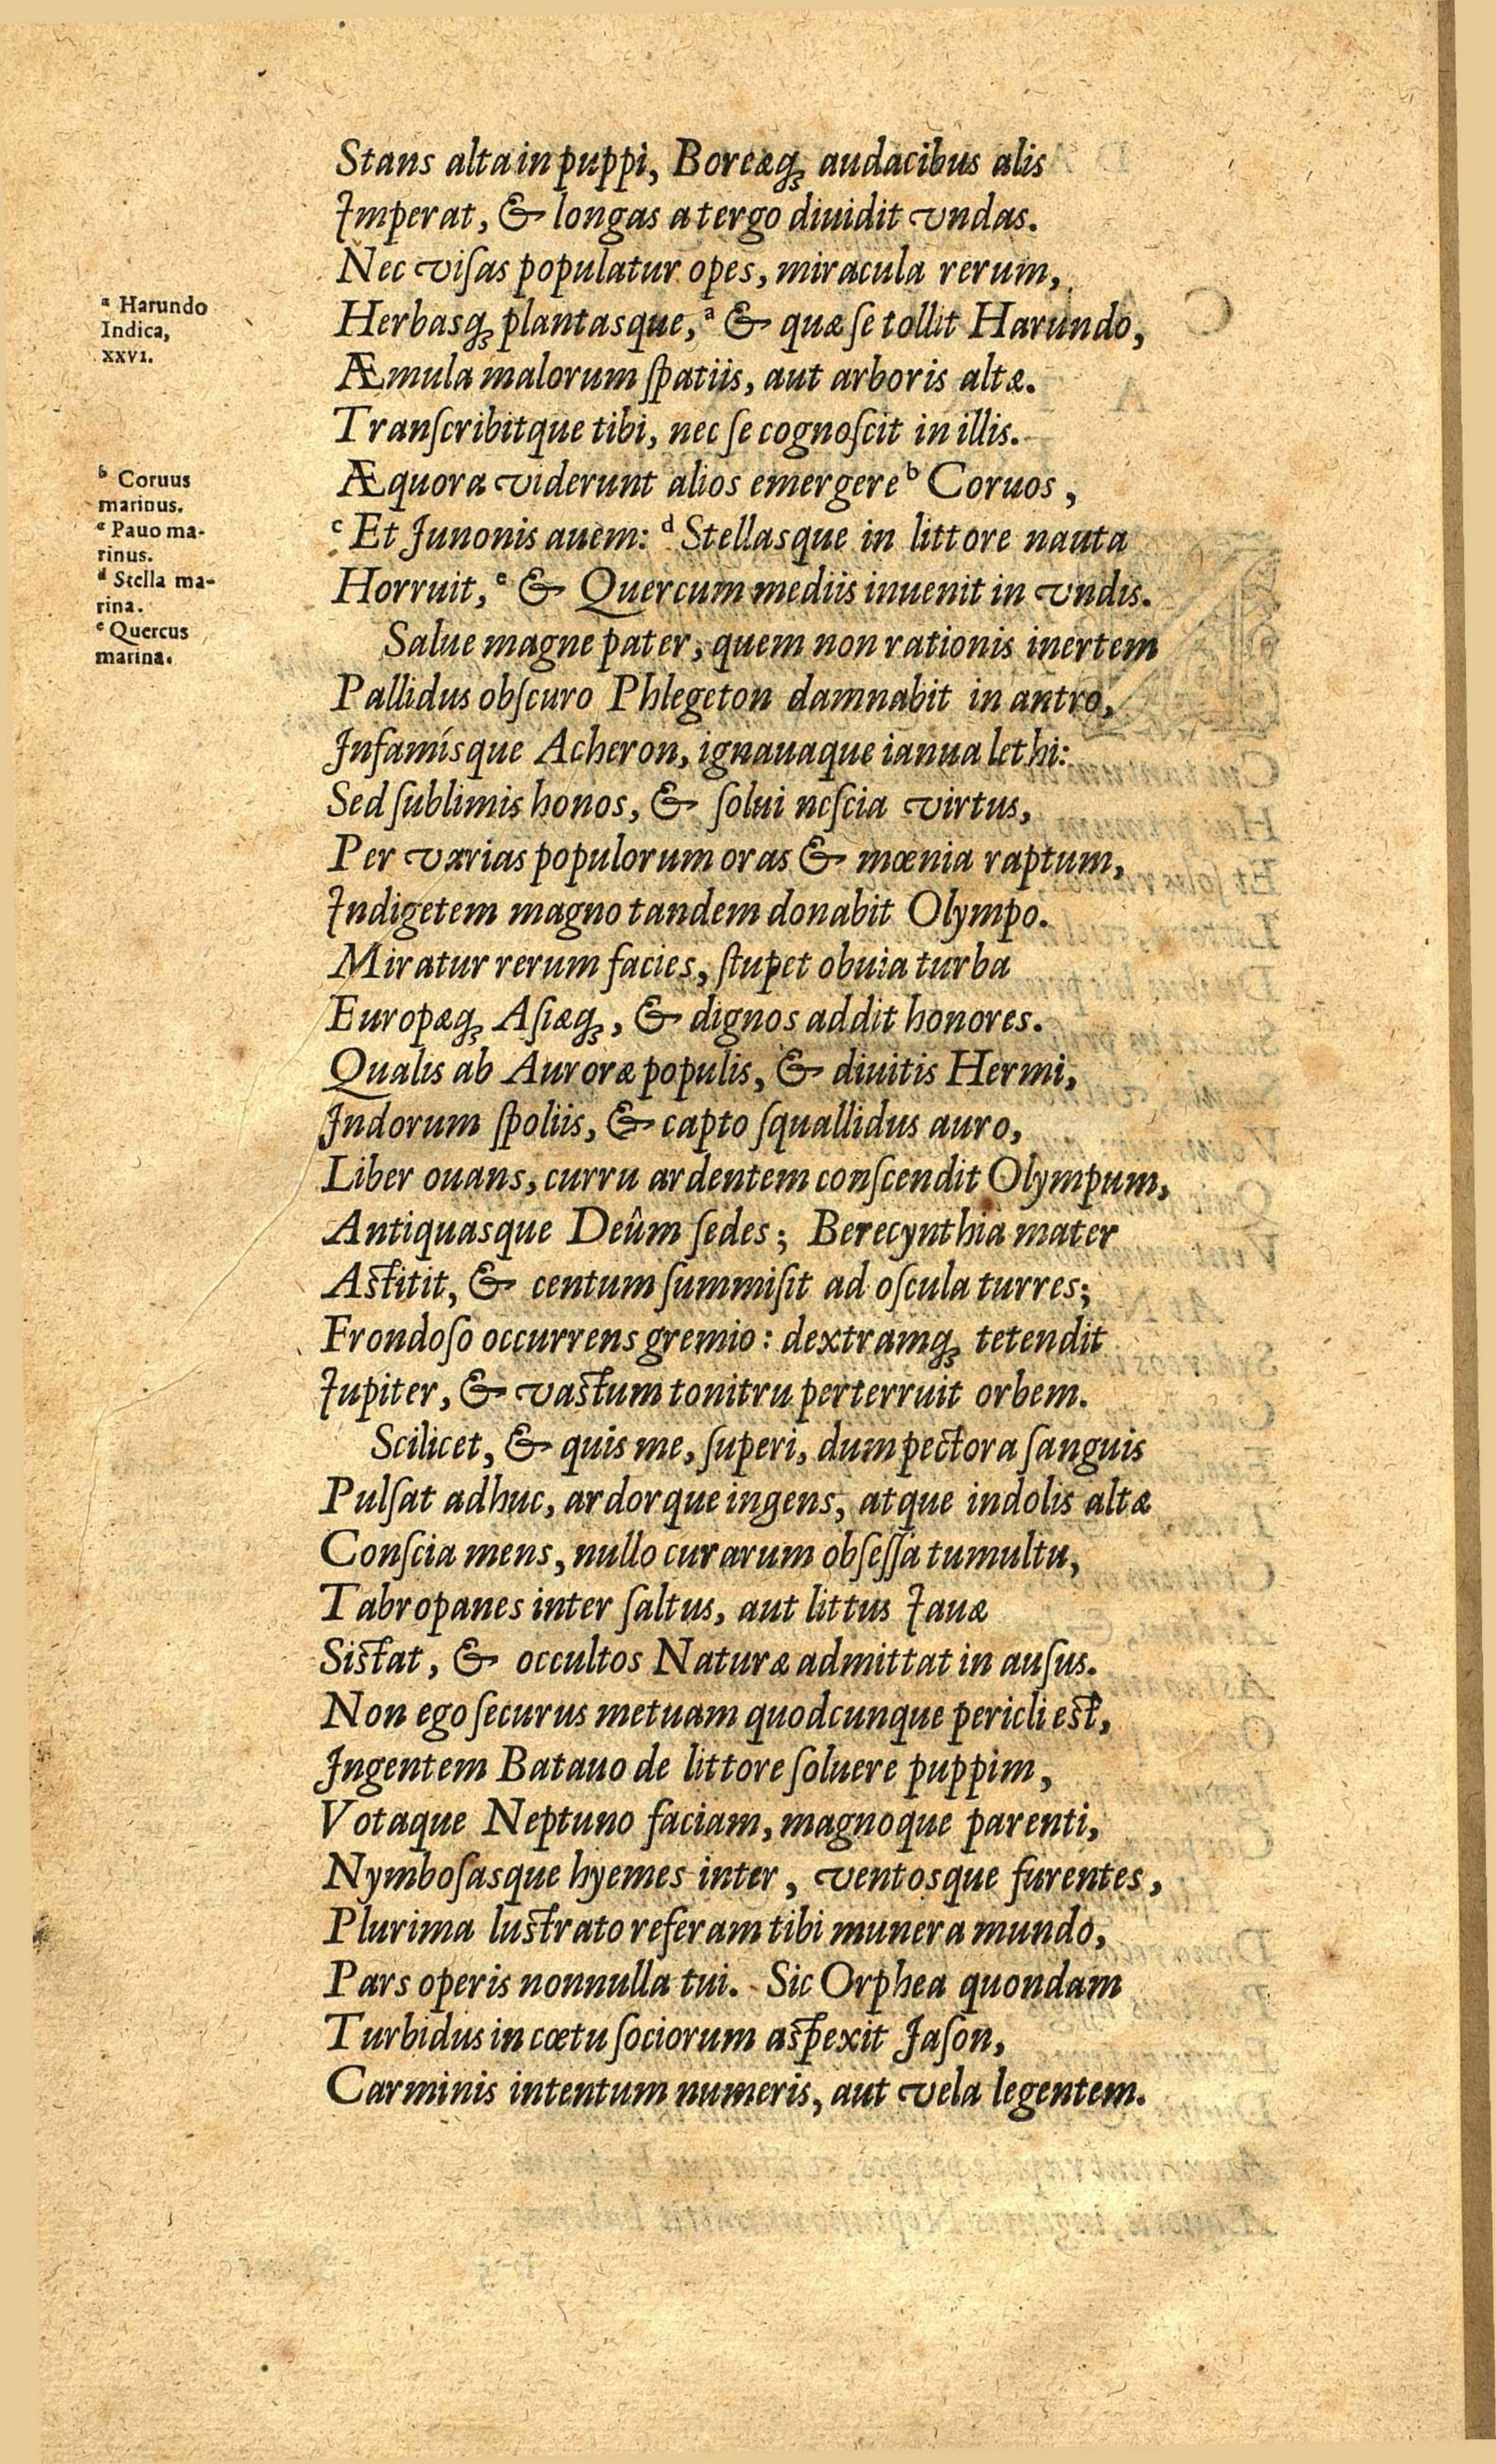 Stans alta in puppi, Boreæq́ꝫ audacibus alis
Imperat, & longas a tergo diuidit vndas.
Nec viſas populatur opes, miracula rerum,
ᵃ Harundo
Indica,
XXVI.
Herbasqꝫ plantasque, ᵃ & quæ ſe tollit Harundo,
Æmula malorum ſpatiis, aut arboris altæ.
Tranſcribitque tibi, nec ſe cognoſcit in illis.
ᵇ Coruus
marinus.
ᶜ Pauo ma-
rinus.
ᵈ Stella ma-
rina.
ᵉ Quercus
marina.
Æquora viderunt alios emergere ᵇ Coruos,
ᶜ Et Junonis auem: ᵈ Stellasque in littore nauta
Horruit, ᵉ & Quercum mediis inuenit in vndis.
Salue magne pater, quem non rationis inertem
Pallidus obſcuro Phlegeton damnabit in antro,
Jnfamísque Acheron, ignauaque ianua lethi:
Sed ſublimis honos, & ſolui neſcia virtus,
Per varias populorum oras & mœnia raptum,
Indigetem magno tandem donabit Olympo.
Miratur rerum facies, ſtupet obuia turba
Europæqꝫ Aſiæqꝫ, & dignos addit honores.
Qualis ab Auroræ populis, & diuitis Hermi,
Jndorum ſpoliis, & capto ſquallidus auro,
Liber ouans, curru ardentem conſcendit Olympum,
Antiquasque Deûm ſedes; Berecynthia mater
Astitit, & centum ſummiſit ad oſcula turres;
Frondoſo occurrens gremio: dextramqꝫ tetendit
Iupiter, & vastum tonitru perterruit orbem.
Scilicet, & quis me, ſuperi, dum pectora ſanguis
Pulſat adhuc, ardorque ingens, atque indolis altæ
Conſcia mens, nullo curarum obſeſſa tumultu,
Tabropanes inter ſaltus, aut littus Iauæ
Sistat, & occultos Naturæ admittat in auſus.
Non ego ſecurus metuam quodcunque pericli est,
Jngentem Batauo de littore ſoluere puppim,
Votaque Neptuno faciam, magnoque parenti,
Nymboſasque hyemes inter, ventosque furentes,
Plurima lustrato referam tibi munera mundo,
Pars operis nonnulla tui. Sic Orphea quondam
Turbidus in cœtu ſociorum aspexit Jaſon,
Carminis intentum numeris, aut vela legentem.